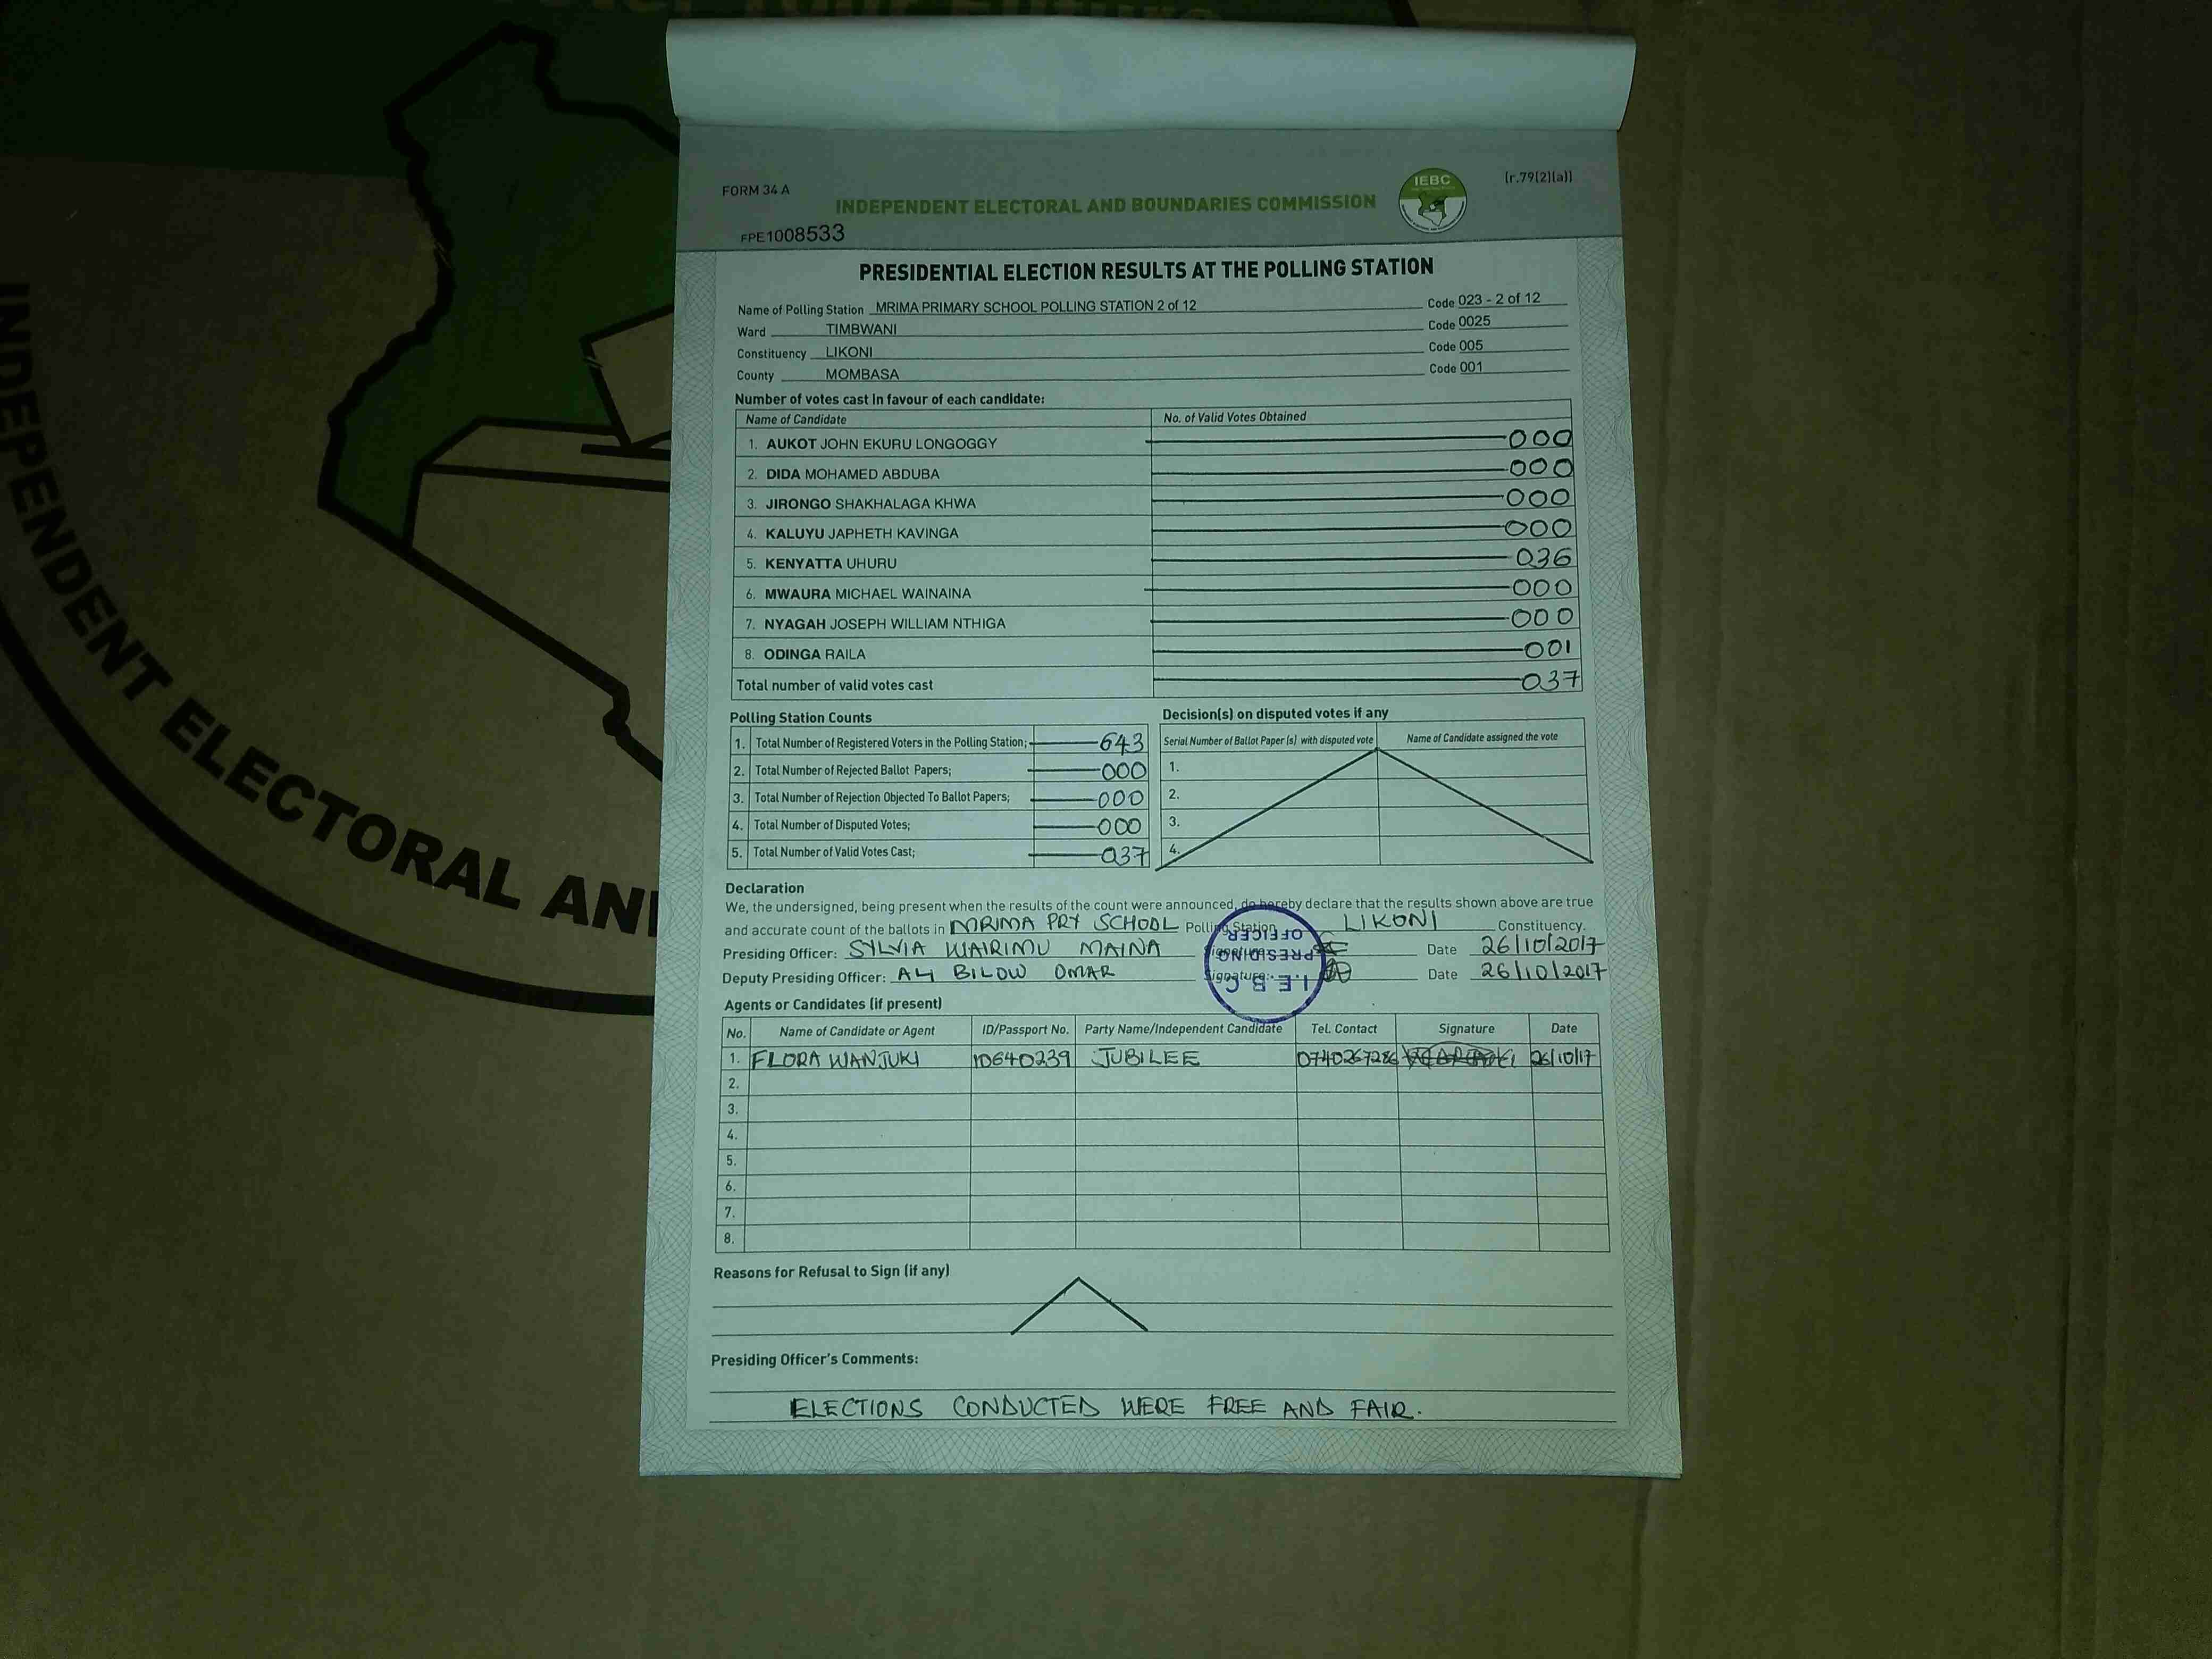 INDEPENDENT ELECTORAL AN
FORM 34 A
IEBC
[r.79(2)(a)]
INDEPENDENT ELECTORAL AND BOUNDARIES COMMISSION
FPE1008533
PRESIDENTIAL ELECTION RESULTS AT THE POLLING STATION
Name of Polling Station MRIMA PRIMARY SCHOOL POLLING STATION 2 of 12 Code 023 - 2 of 12
Ward TIMBWANI Code 0025
Constituency LIKONI Code 005
County MOMBASA Code 001
Number of votes cast in favour of each candidate:
Name of Candidate No. of Valid Votes Obtained
1. AUKOT JOHN EKURU LONGOGGY 000
2. DIDA MOHAMED ABDUBA 000
3. JIRONGO SHAKHALAGA KHWA 000
4. KALUYU JAPHETH KAVINGA 000
5. KENYATTA UHURU 036
6. MWAURA MICHAEL WAINAINA 000
7. NYAGAH JOSEPH WILLIAM NTHIGA 000
8. ODINGA RAILA 001
Total number of valid votes cast 037
Polling Station Counts
1. Total Number of Registered Voters in the Polling Station; 643
2. Total Number of Rejected Ballot Papers; 000
3. Total Number of Rejection Objected To Ballot Papers; 000
4. Total Number of Disputed Votes; 000
5. Total Number of Valid Votes Cast; 037
Decision(s) on disputed votes if any
Serial Number of Ballot Paper (s) with disputed vote Name of Candidate assigned the vote
1.
2.
3.
4.
Declaration
We, the undersigned, being present when the results of the count were announced, do hereby declare that the results shown above are true
and accurate count of the ballots in MRIMA PRY SCHOOL Polling Station LIKONI Constituency.
Presiding Officer: SYLVIA WAIRIMU MAINA Signature: Date 26/10/2017
Deputy Presiding Officer: ALI BILOW OMAR Signature: Date 26/10/2017
I.E.B.C
PRESIDING
OFFICER
Agents or Candidates (if present)
No. Name of Candidate or Agent ID/Passport No. Party Name/Independent Candidate Tel. Contact Signature Date
1. FLORA WANJUKI 10640239 JUBILEE 0740267286 26/10/17
2.
3.
4.
5.
6.
7.
8.
Reasons for Refusal to Sign (if any)
Presiding Officer's Comments:
ELECTIONS CONDUCTED WERE FREE AND FAIR.